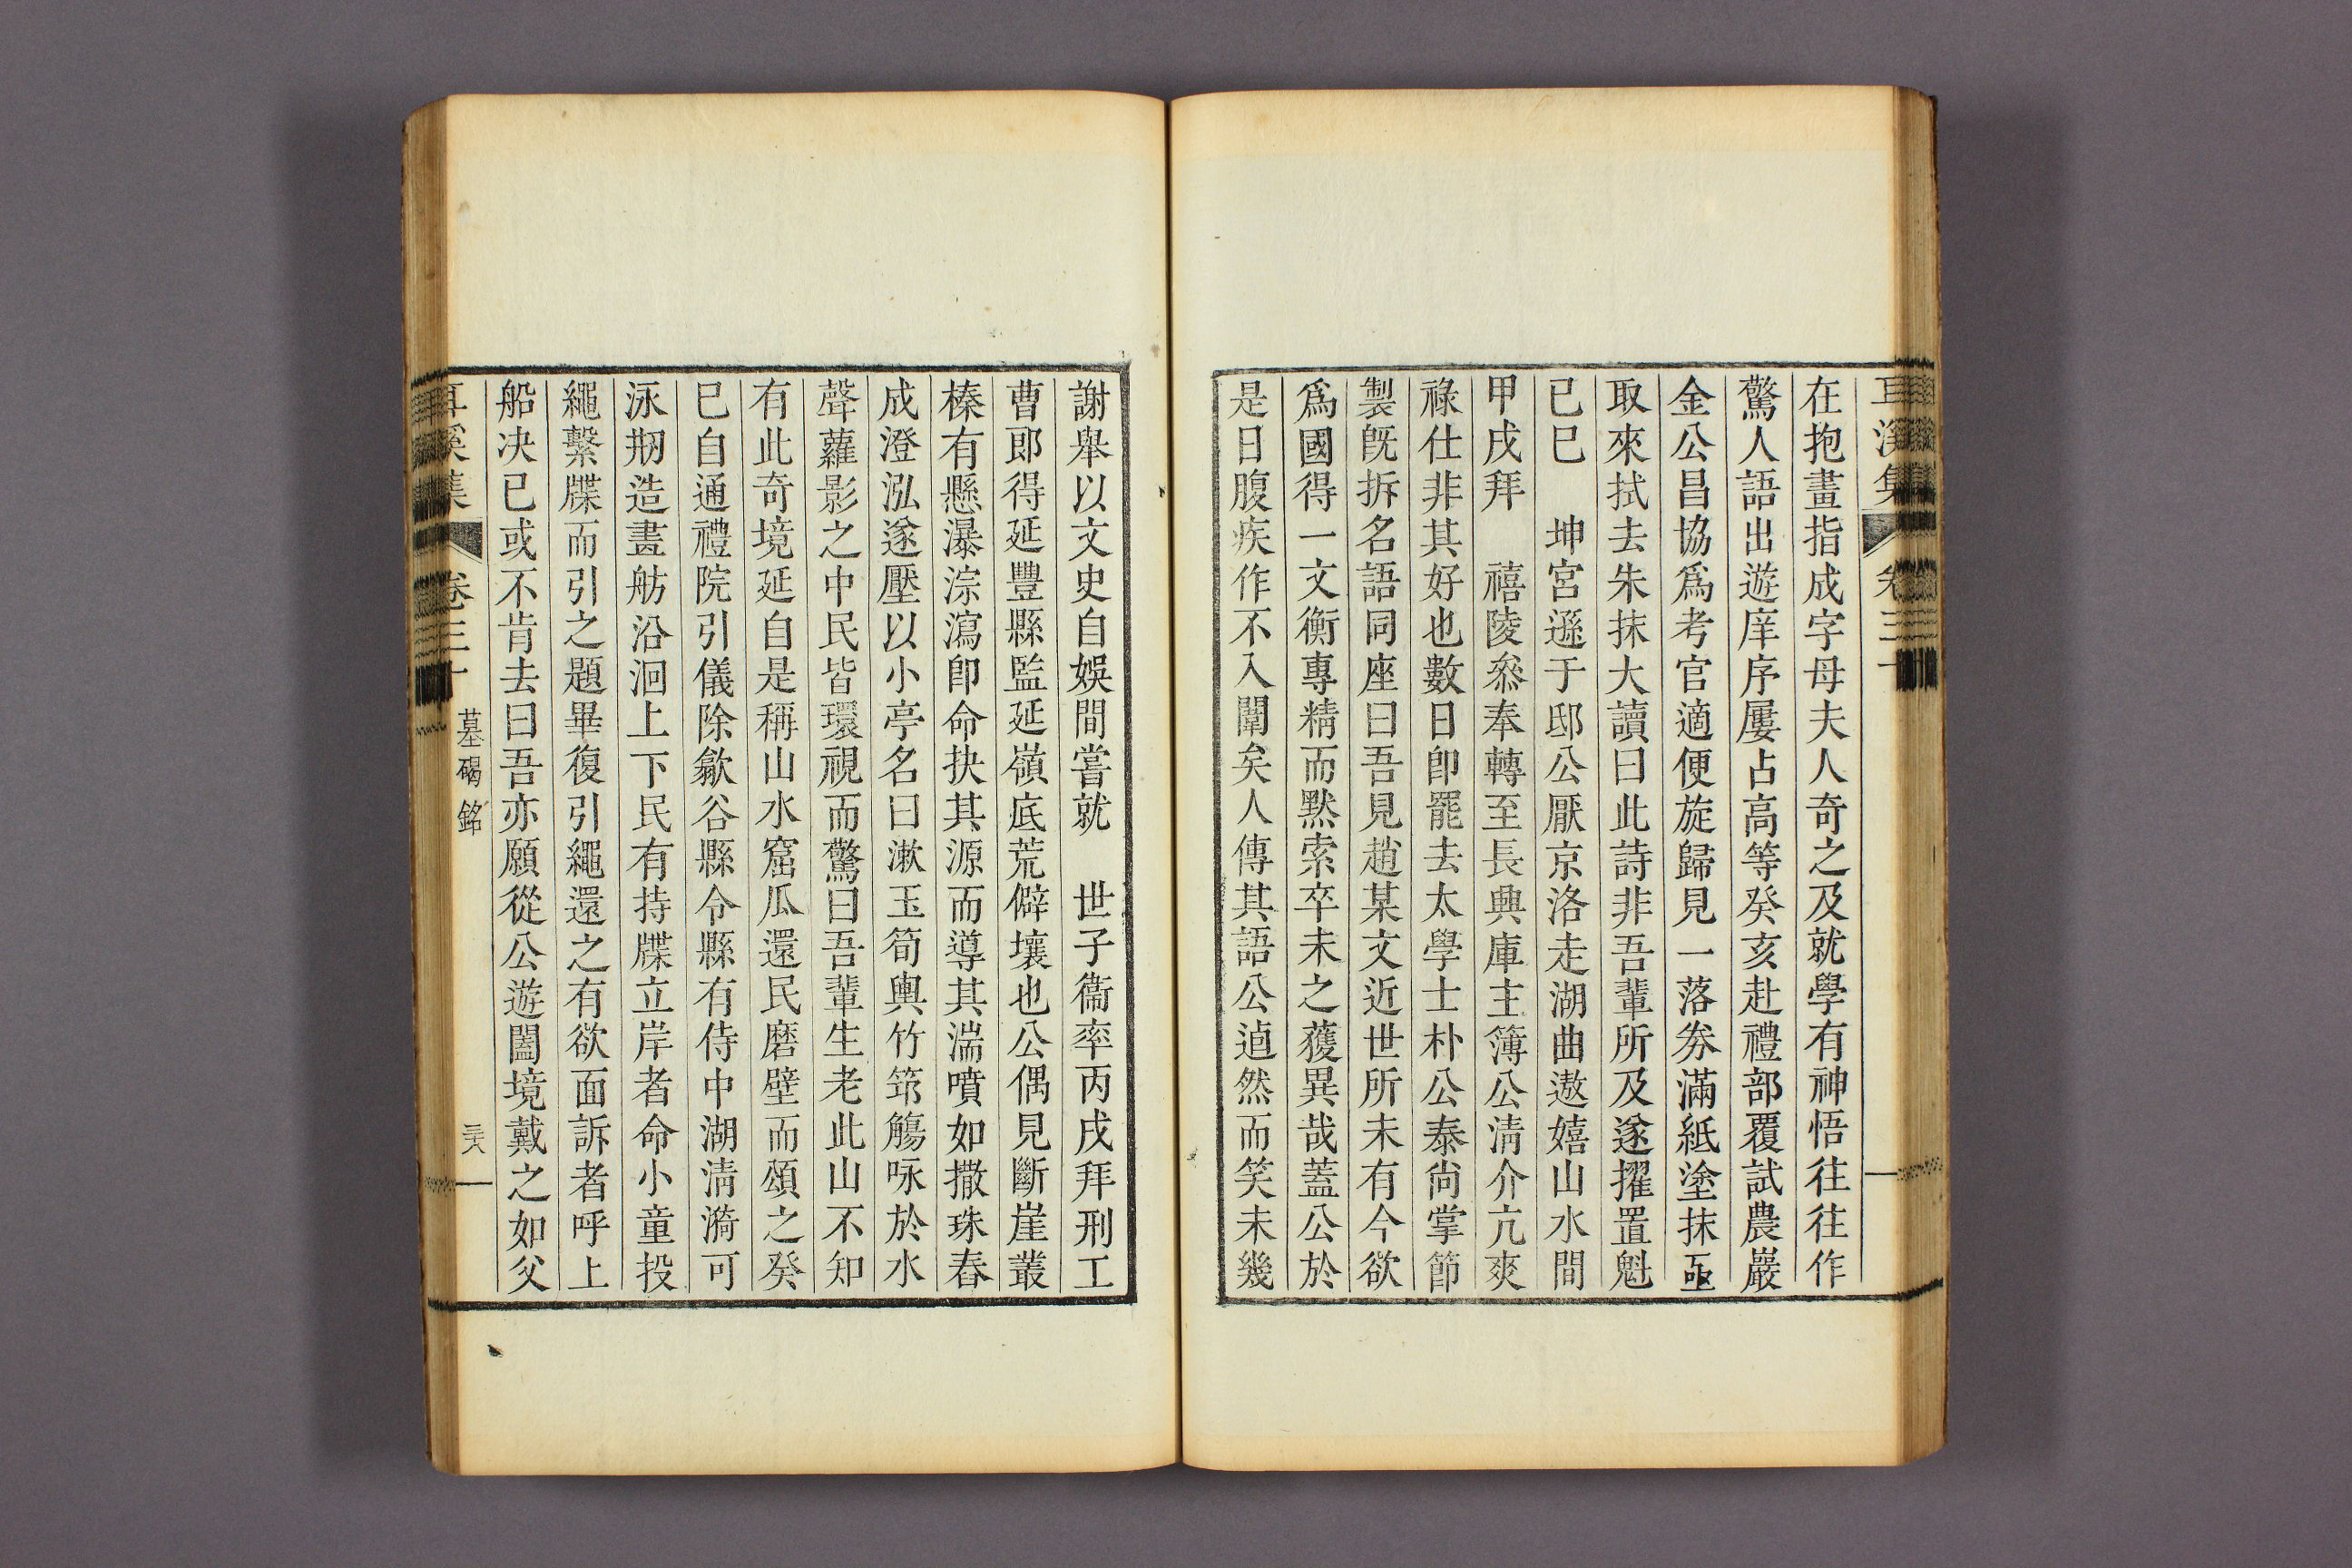 耳溪集 卷三十
在抱畫指成字母夫人奇之及就學有神悟往往作
驚人語出遊庠序屢占高等癸亥赴禮部覆試農巖
金公昌協爲考官適便旋歸見一落券滿紙塗抹亟
取來拭去朱抹大讀曰此詩非吾輩所及遂擢置魁
已巳 坤宮遜于邸公厭京洛走湖曲遨嬉山水間
甲戌拜 禧陵叅奉轉至長興庫主簿公淸介亢爽
祿仕非其好也數日卽罷去太學士朴公泰尙掌節
製旣拆名語同座曰吾見趙某文近世所未有今欲
爲國得一文衡專精而默索卒未之獲異哉蓋公於
是日腹疾作不入闈矣人傳其語公逌然而笑未幾
謝舉以文史自娛間嘗就 世子衞率丙戌拜刑工
曹郎得延豐縣監延嶺底荒僻壤也公偶見斷崖叢
榛有懸瀑淙瀉卽命抉其源而導其湍噴如撒珠舂
成澄泓遂壓以小亭名曰漱玉筍輿竹筇觴咏於水
聲蘿影之中民皆環視而驚曰吾輩生老此山不知
有此奇境延自是稱山水窟瓜還民磨壁而頌之癸
巳自通禮院引儀除歙谷縣令縣有侍中湖淸漪可
泳刱造畵舫沿洄上下民有持牒立岸者命小童投
繩繫牒而引之題畢復引繩還之有欲面訴者呼上
船决已或不肯去曰吾亦願從公遊闔境戴之如父
耳溪集 卷三十 墓碣銘 三六